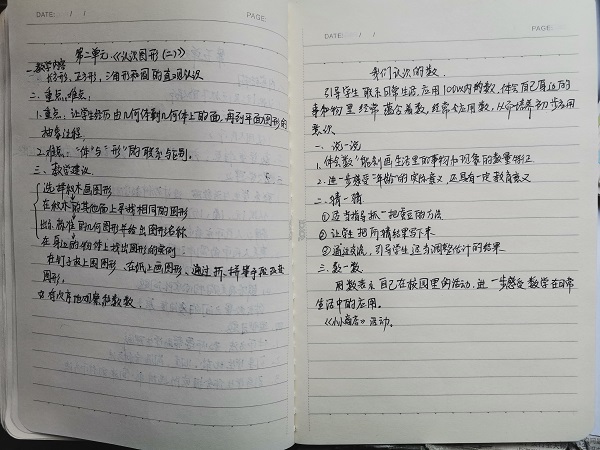 DATE: / /
PAGE:
第二单元.《认识图形(二)》
一.教学内容
长方形、正方形、三角形和圆的直观认识
二.重点、难点:
1.重点:让学生经历由几何体到几何体上的面,再到平面图形的
抽象过程.
2.难点:"体"与"形"的联系与区别.
三.教学建议
选择积木画图形
在积木的其他面上寻找相同的图形
出标准的几何图形并给出图形名称
在身边的物体上找出图形的实例
在钉子板上围图形、在纸上画图形、通过折、拼等手段改变
图形.
有序地观察和数数.
DATE: / /
PAGE:
我们认识的数.
引导学生联系日常生活,应用100以内的数,体会自己身边的
事和物里经常蕴含着数,经常应用数,从而培养初步应用
意识.
一.说一说
1.体会数能刻画生活里的事物和现象的数量特征
2.进一步感受"年龄"的实际意义,还具有一定教育意义
二.猜一猜
①适当指导抓一把蚕豆的方法
②让学生把所猜结果写下来
③通过交流,引导学生适当调整估计的结果
三.数一数
用数表示自己在校园里的活动,进一步感受数学在日常
生活中的应用.
《小小商店》活动.